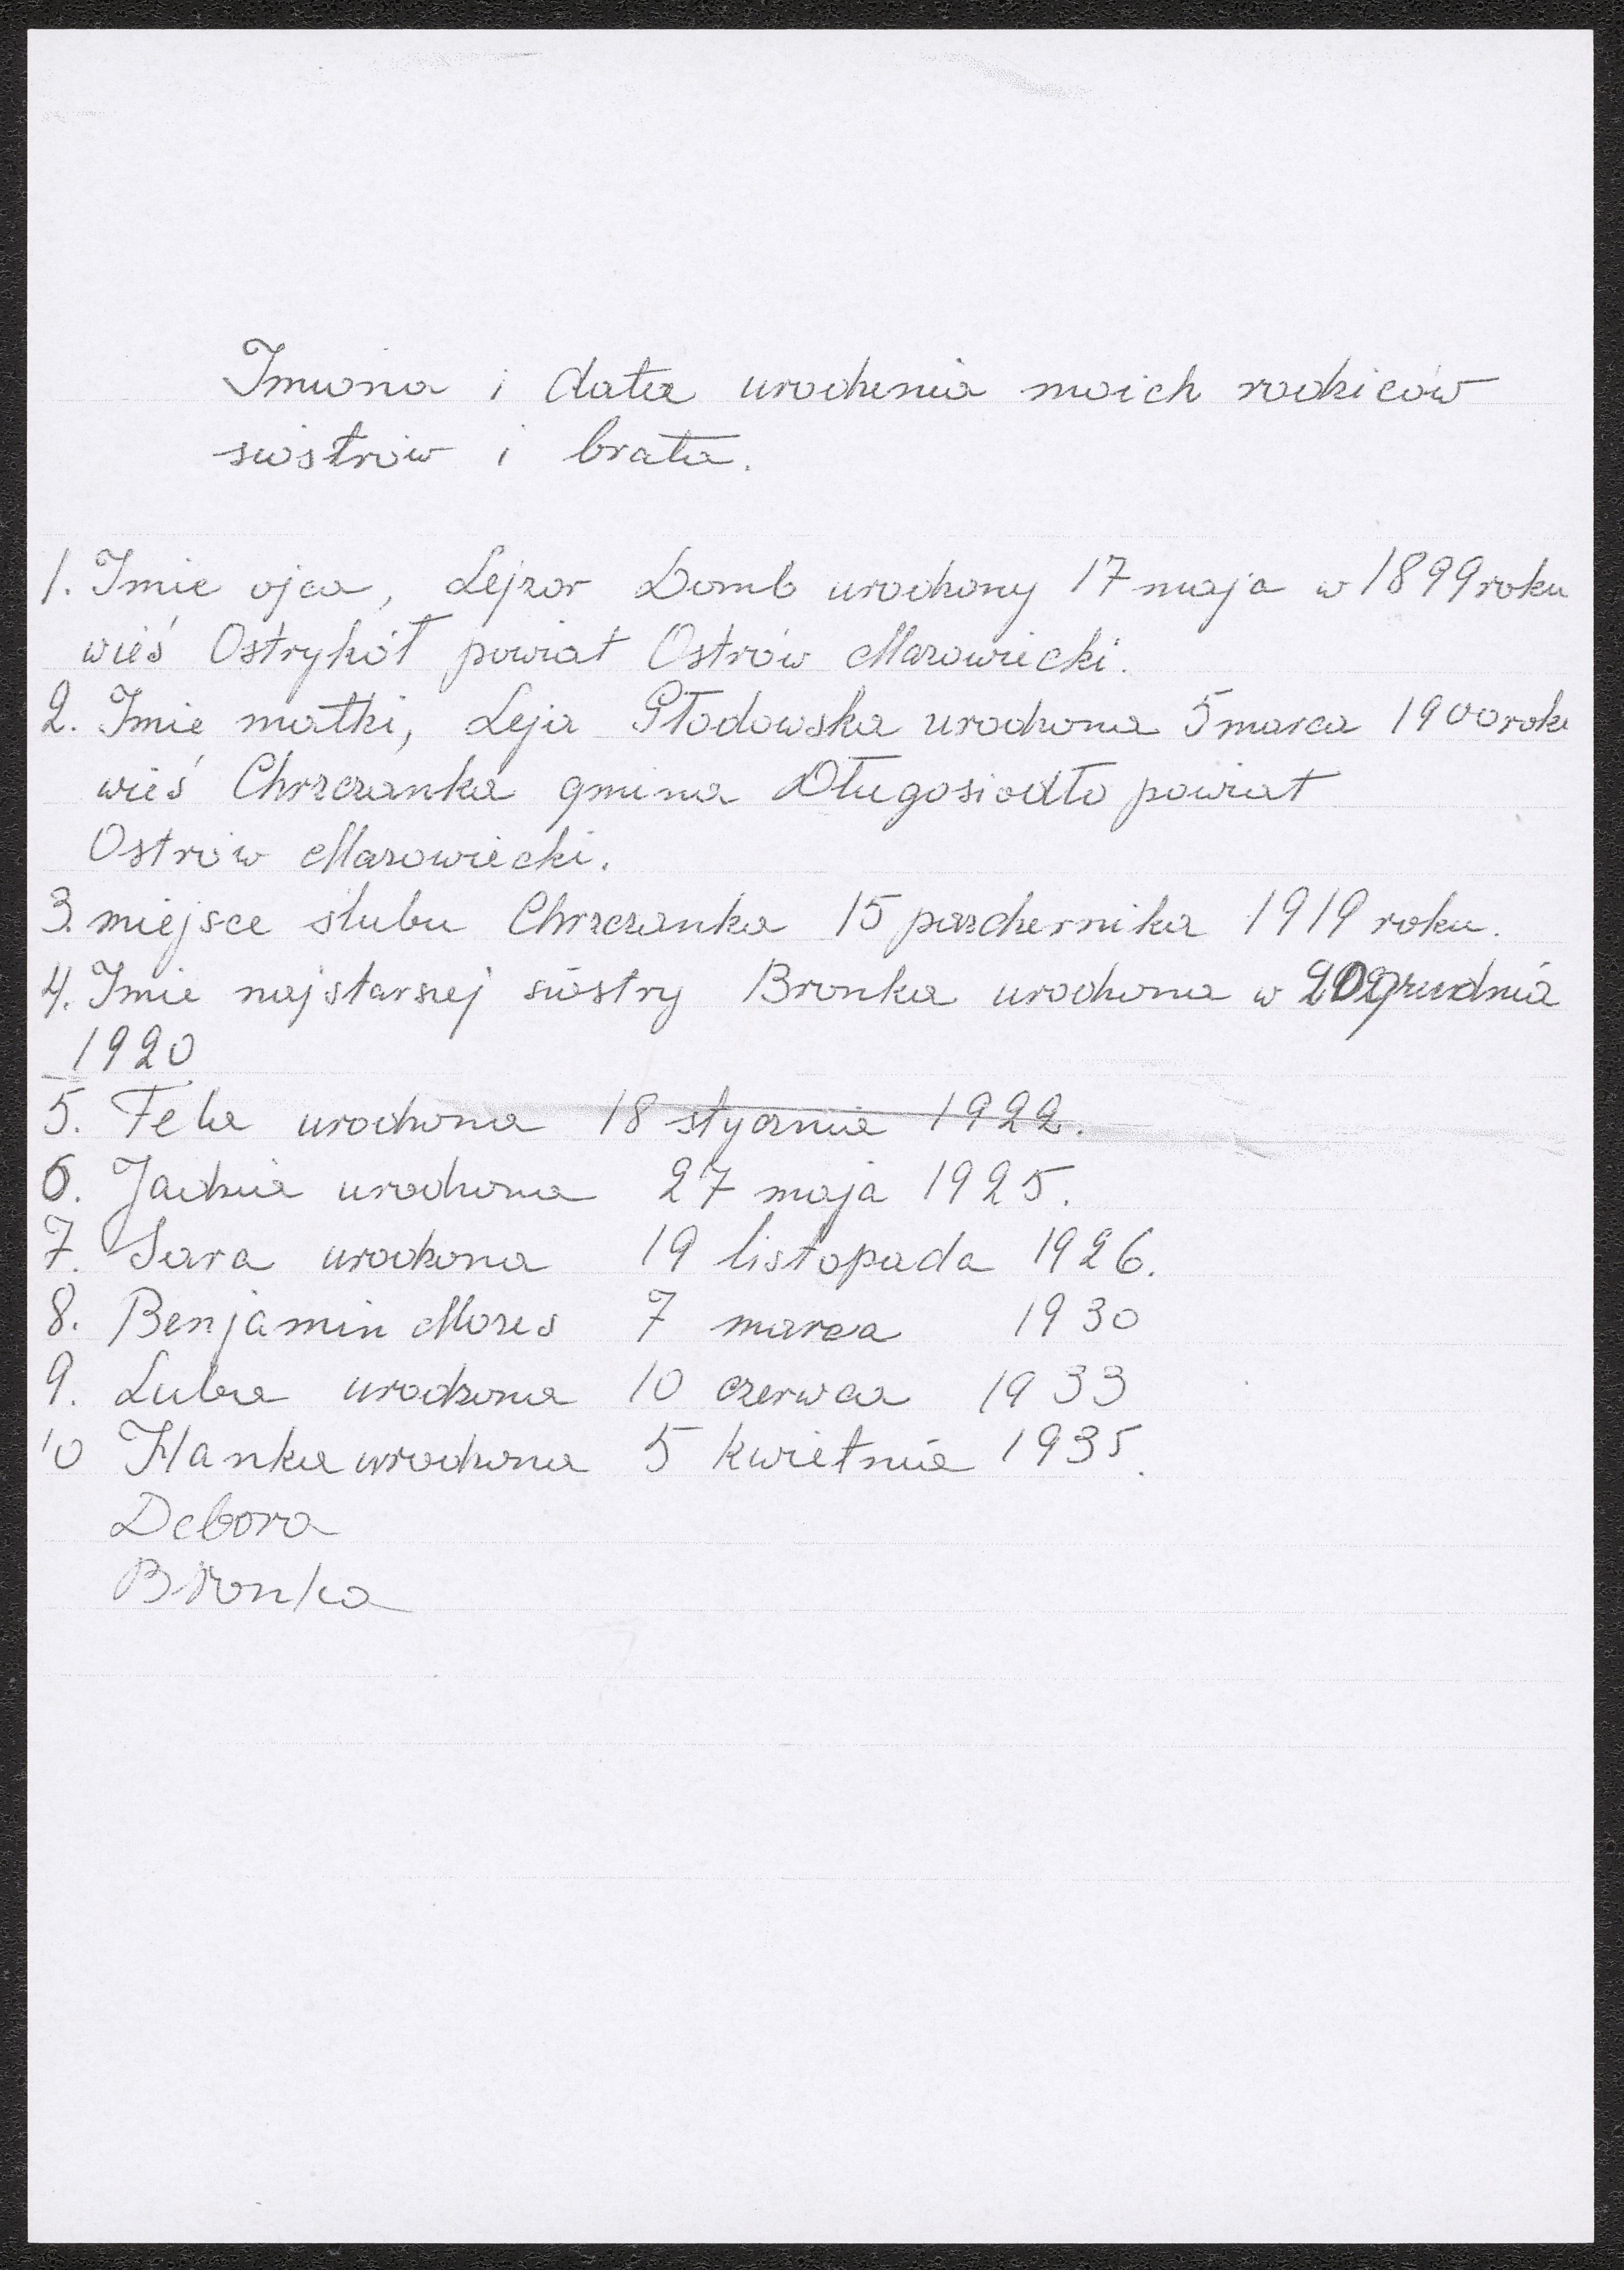 Imiona i data urodzenia moich rodziców
siostrów i brata.
1. Imie ojca, Lejzor Domb urodzony 17 maja w 1899 roku
wieś Ostrykół powiat Ostrów Mazowiecki.
2. Imie matki, Leja Płodowska urodzona 5 marca 1900 roku
wieś Chrzczanka gmina Długosiodło powiat
Ostrów Mazowiecki.
3. miejsce slubu Chrzczanka 15 pazdzernika 1919 roku.
4. Imie najstarszej siostry Bronka urodzona w 20 grudnia
1920
5. Fela urodzona 18 stycznia 1922.
6. Jadzia urodzona 27 maja 1925.
7. Sara urodzona 19 listopada 1926.
8. Benjamin Mozes 7 marca 1930
9. Luba urodzona 10 czerwca 1933
10 Hanka urodzona 5 kwietnia 1935.
Debora
Bronka